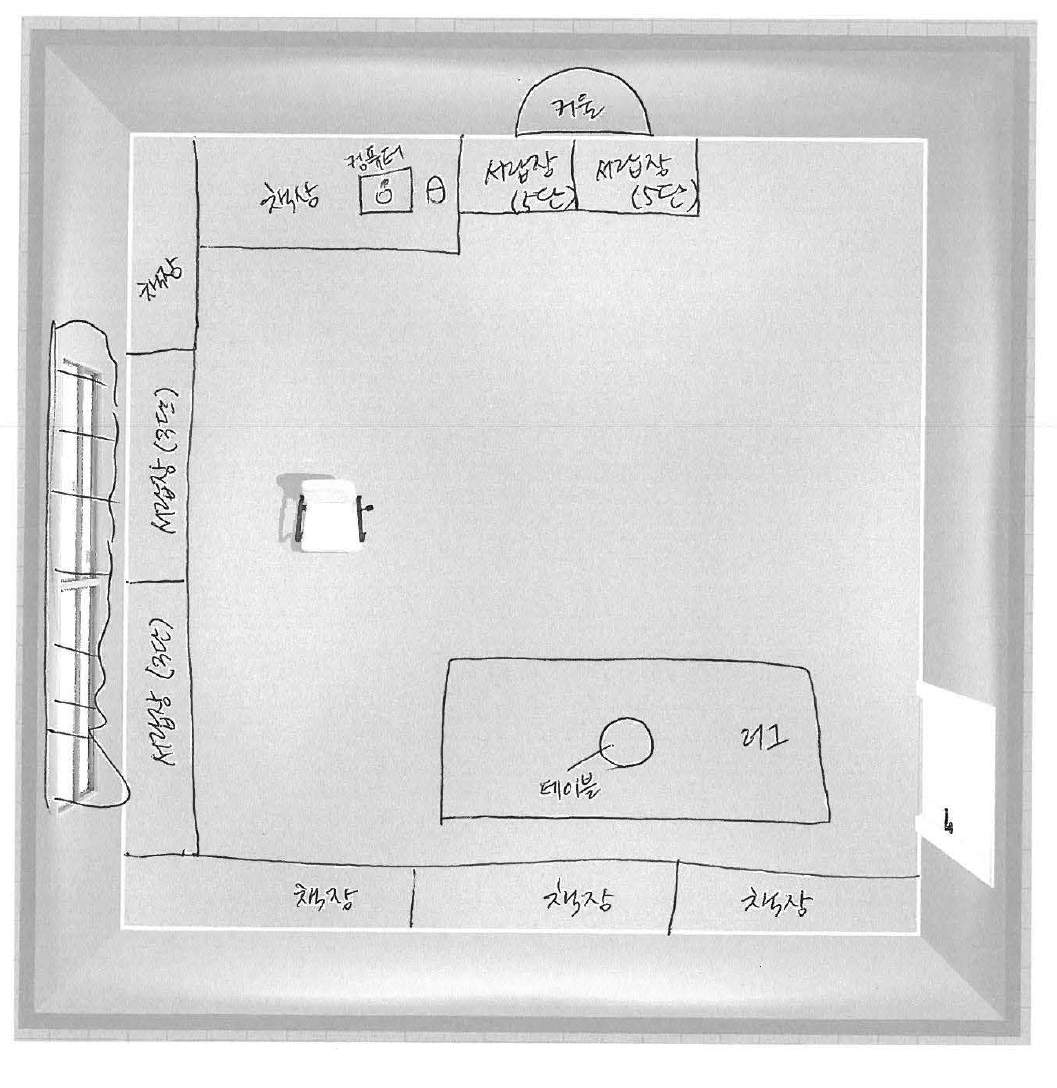 거울
컴퓨터
책상
서랍장
(5단)
서랍장
(5단)
책장
서랍장 (3단)
서랍장 (3단)
러그
테이블
책장
책장
책장